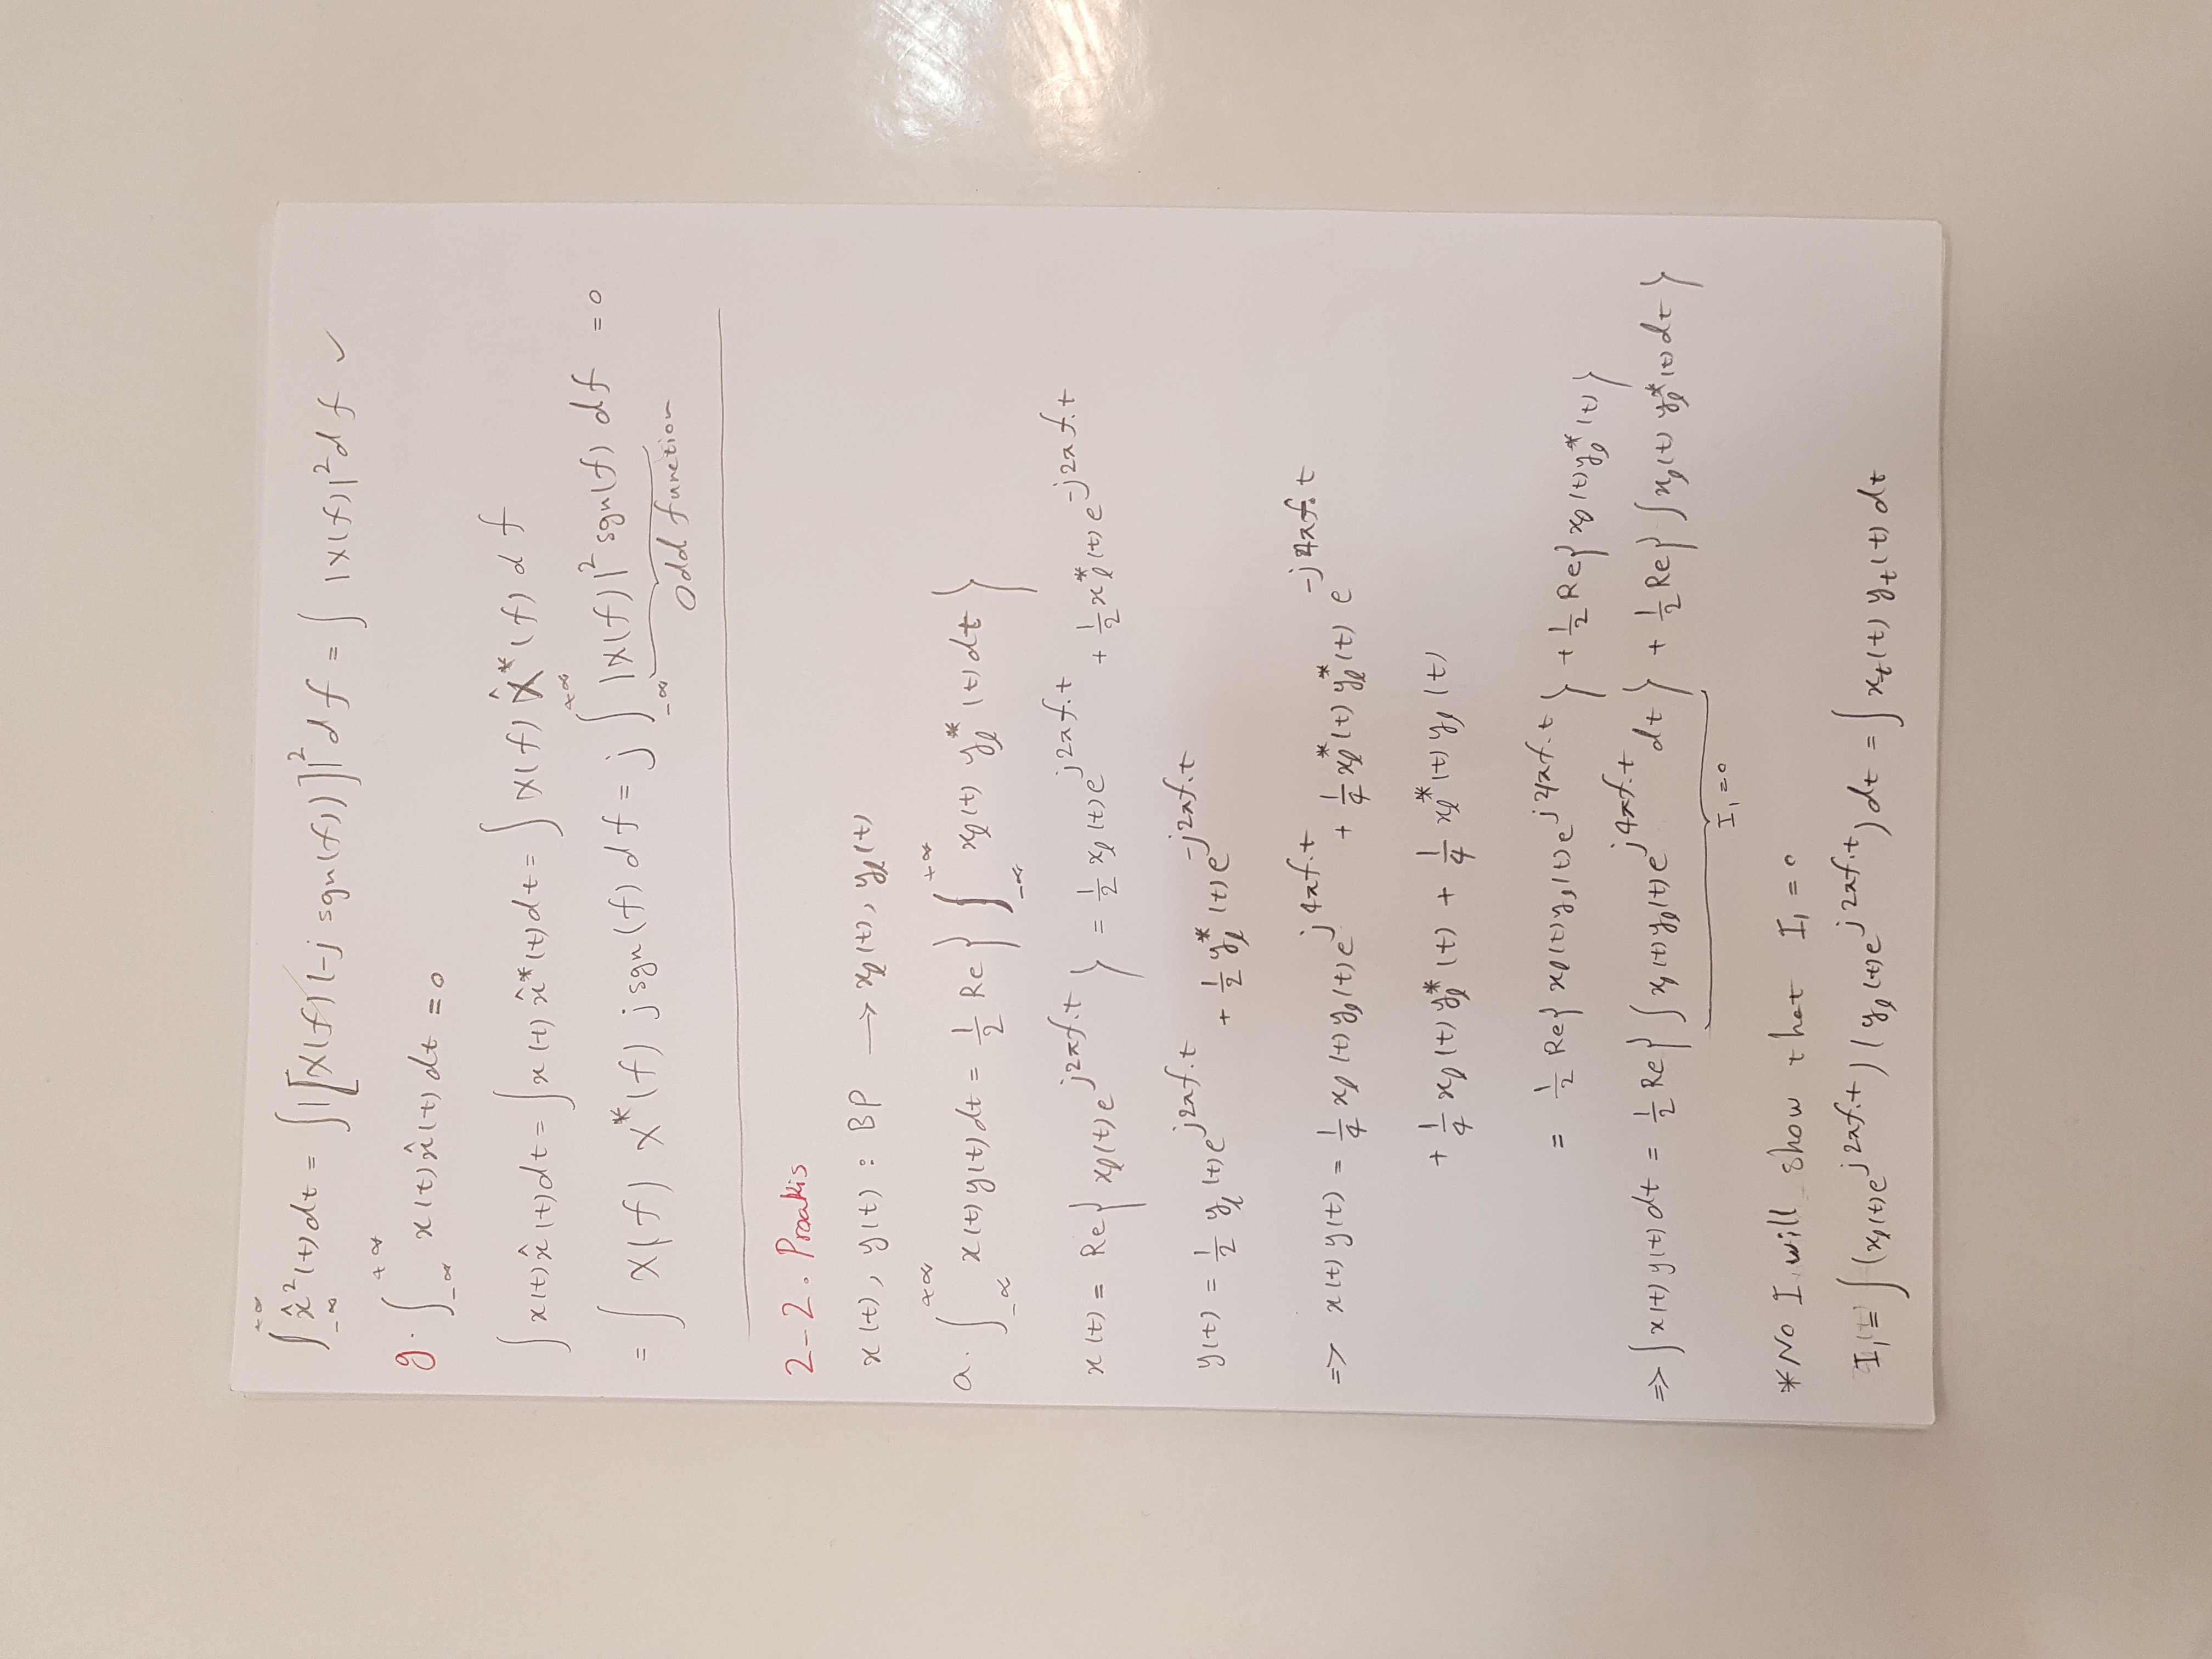 ∫_{-∞}^{+∞} x̂²(t) dt = ∫ |[X(f) (-j sgn(f))]|² d f = ∫ |X(f)|² d f ✓
g. ∫_{-∞}^{+∞} x(t) x̂(t) dt = 0
∫ x(t) x̂(t) dt = ∫ x(t) x̂*(t) dt = ∫ X(f) X̂*(f) d f
= ∫ X(f) X*(f) j sgn(f) d f = j ∫_{-∞}^{+∞} |X(f)|² sgn(f) df = 0
Odd function
2-2. Proakis
x(t), y(t) : BP → x_l(t), y_l(t)
a. ∫_{-∞}^{+∞} x(t) y(t) dt = 1/2 Re { ∫_{-∞}^{+∞} x_l(t) y_l*(t) dt }
x(t) = Re{ x_l(t) e^{j2πf₀t} } = 1/2 x_l(t) e^{j2πf₀t} + 1/2 x_l*(t) e^{-j2πf₀t}
y(t) = 1/2 y_l(t) e^{j2πf₀t} + 1/2 y_l*(t) e^{-j2πf₀t}
=> x(t) y(t) = 1/4 x_l(t) y_l(t) e^{j4πf₀t} + 1/4 x_l*(t) y_l*(t) e^{-j4πf₀t}
+ 1/4 x_l(t) y_l*(t) + 1/4 x_l*(t) y_l(t)
= 1/2 Re{ x_l(t) y_l(t) e^{j4πf₀t} } + 1/2 Re{ x_l(t) y_l*(t) }
=> ∫ x(t) y(t) dt = 1/2 Re{ ∫ x_l(t) y_l(t) e^{j4πf₀t} dt } + 1/2 Re{ ∫ x_l(t) y_l*(t) dt }
I₁ = 0
* No I will show that I₁ = 0
I₁ = ∫ (x_l(t) e^{j2πf₀t}) (y_l(t) e^{j2πf₀t}) dt = ∫ x₊(t) y₊(t) dt